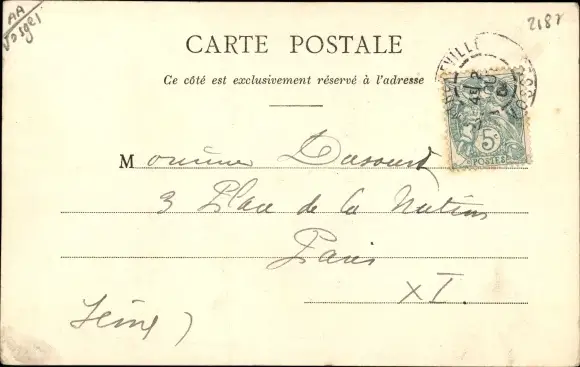 AA
Vosges
2187
CARTE POSTALE
Ce côté est exclusivement réservé à l'adresse
VILLE
VOSGES
5c
POSTES
Monsieur
3 Place de la Nation
Paris
XI.
Seine)